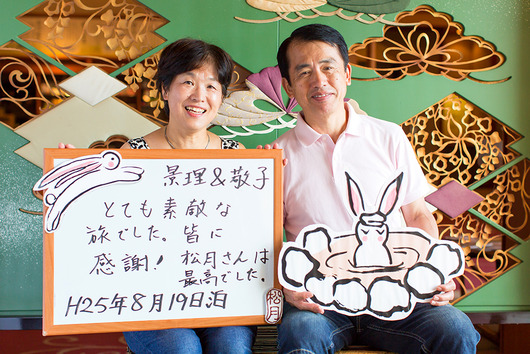 景理&敬子
とても素敵な
旅でした。皆に
感謝! 松月さんは
最高でした。
H25年8月19日泊
松月